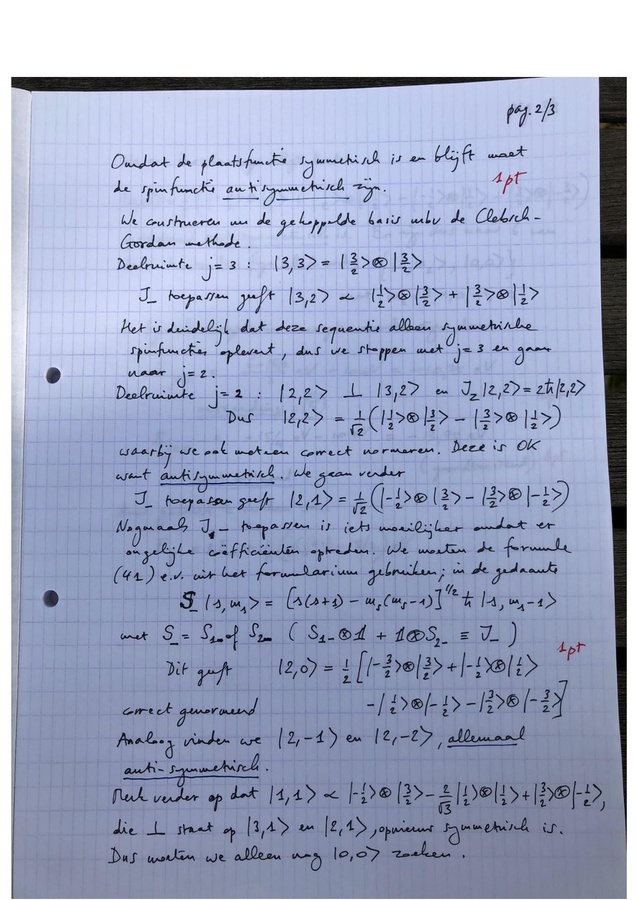 pag. 2/3
Omdat de plaatsfunctie symmetrisch is en blijft moet
de spinfunctie antisymmetrisch zijn.
1pt
We construeren nu de gekoppelde basis mbv de Clebsch-
Gordan methode.
Deelruimte j=3 : |3,3> = |3/2>⊗|3/2>
J_ toepassen geeft |3,2> ∝ |1/2>⊗|3/2> + |3/2>⊗|1/2>
Het is duidelijk dat deze sequentie alleen symmetrische
spinfuncties oplevert, dus we stoppen met j=3 en gaan
naar j=2.
Deelruimte j=2 : |2,2> ⊥ |3,2> en J_z|2,2> = 2ħ|2,2>
Dus |2,2> = 1/√2 (|1/2>⊗|3/2> - |3/2>⊗|1/2>)
waarbij we ook meteen correct normeren. Deze is OK
want antisymmetrisch. We gaan verder
J_ toepassen geeft |2,1> = 1/√2 (|-1/2>⊗|3/2> - |3/2>⊗|-1/2>)
Nogmaals J_ toepassen is iets moeilijker omdat er
ongelijke coëfficiënten optreden. We moeten de formule
(41) e.v. uit het formularium gebruiken; in de gedaante
S_ |s,m_s> = [s(s+1) - m_s(m_s-1)]^1/2 ħ |s,m_s-1>
met S_ = S_1- of S_2- ( S_1-⊗1 + 1⊗S_2- ≡ J_ )
1pt
Dit geeft |2,0> = 1/2 [|-3/2>⊗|3/2> + |-1/2>⊗|1/2>
correct genormeerd -|1/2>⊗|-1/2> - |3/2>⊗|-3/2>]
Analoog vinden we |2,-1> en |2,-2>, allemaal
anti-symmetrisch.
Merk verder op dat |1,1> ∝ |-1/2>⊗|3/2> - 2/√3 |1/2>⊗|1/2> + |3/2>⊗|-1/2>,
die ⊥ staat op |3,1> en |2,1>, opnieuw symmetrisch is.
Dus moeten we alleen nog |0,0> zoeken.